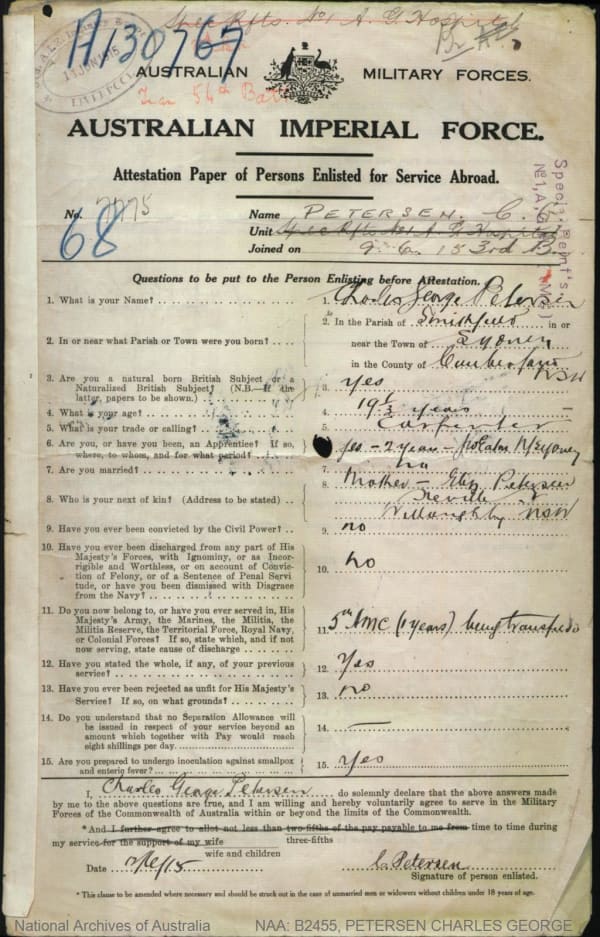 Spec Rfts. No 1 A. G. Hospital
A130767
AUSTRALIAN MILITARY FORCES.
56th Batt
AUSTRALIAN IMPERIAL FORCE.
Attestation Paper of Persons Enlisted for Service Abroad.
No. 7775
68
Name PETERSEN. C. G.
Unit Spec Rfts No 1 A. G. Hospital
Joined on 9. 6. 15 3rd B.
Special Reinf's.
Questions to be put to the Person Enlisting before Attestation.
1. What is your Name? 1. Charles George Petersen
2. In or near what Parish or Town were you born? 2. In the Parish of Smithfield in or
near the Town of Sydney
in the County of Cumberland
NSW
3. Are you a natural born British Subject or a
Naturalized British Subject? (N.B.—If the
latter, papers to be shown.) 3. yes
4. What is your age? 4. 19 years
5. What is your trade or calling? 5. Carpenter
6. Are you, or have you been, an Apprentice? If so,
where, to whom, and for what period? 6. yes - 2 years - Sydney
7. Are you married? 7. no
8. Who is your next of kin? (Address to be stated) 8. Mother - Eliz Petersen
Neville St
Willoughby NSW
9. Have you ever been convicted by the Civil Power? 9. no
10. Have you ever been discharged from any part of His
Majesty's Forces, with Ignominy, or as Incor-
rigible and Worthless, or on account of Convic-
tion of Felony, or of a Sentence of Penal Servi
tude, or have you been Dismissed with Disgrace
from the Navy? 10. no
11. Do you now belong to, or have you ever served in, His
Majesty's Army, the Marines, the Militia, the
Militia Reserve, the Territorial Force, Royal Navy,
or Colonial Forces? If so, state which, and if not
now serving, state cause of discharge 11. 5th AMC (1 years) being transferred
12. Have you stated the whole, if any, of your previous
service? 12. Yes
13. Have you ever been rejected as unfit for His Majesty's
Service? If so, on what grounds? 13. no
14. Do you understand that no Separation Allowance will
be issued in respect of your service beyond an
amount which together with Pay would reach
eight shillings per day 14. —
15. Are you prepared to undergo inoculation against smallpox
and enteric fever? 15. Yes
I, Charles George Petersen do solemnly declare that the above answers made
by me to the above questions are true, and I am willing and hereby voluntarily agree to serve in the Military
Forces of the Commonwealth of Australia within or beyond the limits of the Commonwealth.
*And I further agree to allot not less than two-fifths of the pay payable to me from time to time during
three-fifths
my service for the support of my wife
wife and children
Date 2/6/15 C. Petersen
Signature of person enlisted.
* This clause to be amended where necessary and should be struck out in the case of unmarried men or widowers without children under 18 years of age.
National Archives of Australia NAA: B2455, PETERSEN CHARLES GEORGE